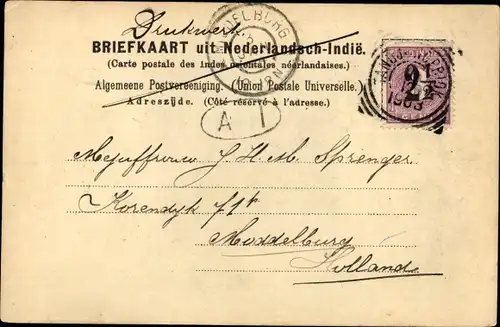 Drukwerk
MIDDELBURG
BRIEFKAART uit Nederlandsch-Indië.
(Carte postale des Indes orientales néerlandaises.)
Algemeene Postvereeniging. (Union Postale Universelle.)
Adreszijde. (Côté réservé à l'adresse.)
2 1/2
CENT
1903
A I
Mejuffrouw J. H. M. Sprenger
Korendijk
Middelburg
Holland